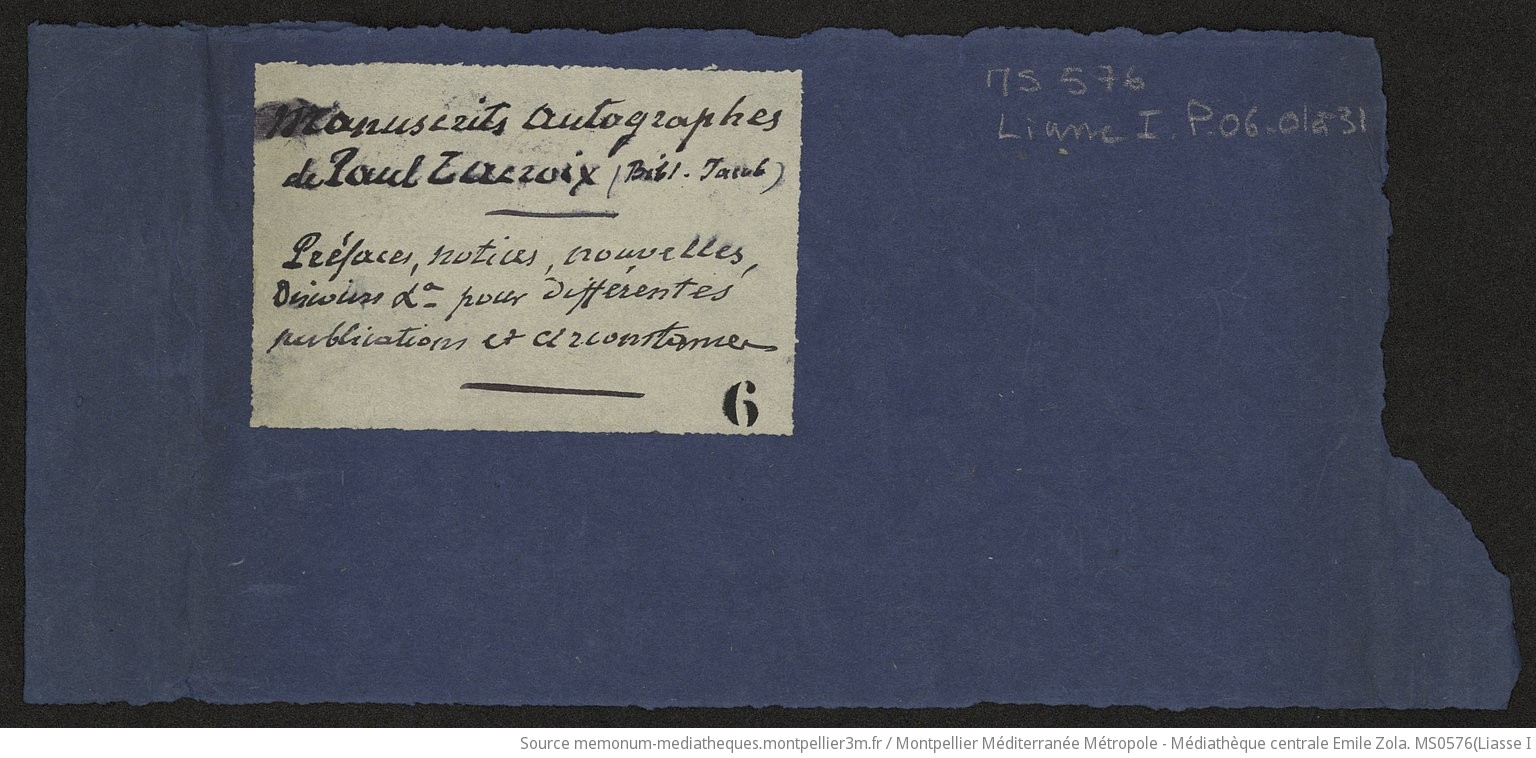 Manuscrits autographes
de Paul Lacroix (Bibl. Jacob)
Préfaces, notices, nouvelles,
Discours &a pour différentes
publications et circonstances
6
MS 576
Liasse I. P.06-01à31
Source memonum-mediatheques.montpellier3m.fr / Montpellier Méditerranée Métropole - Médiathèque centrale Emile Zola. MS0576(Liasse I